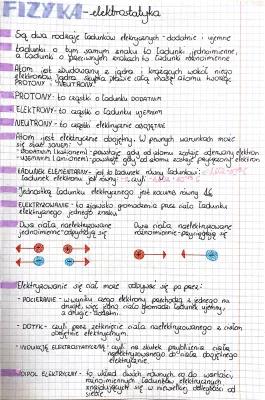 FIZYKA - elektrostatyka
Są dwa rodzaje ładunków elektrycznych - dodatnie i ujemne
Ładunki o tym samym znaku to ładunki jednoimienne,
a ładunki o przeciwnych znakach to ładunki różnoimienne
Atom jest zbudowany z jądra i krążących wokół niego
elektronów. Jądro skupia prawie całą masę atomu tworząc
PROTONY i NEUTRONY.
PROTONY - to cząstki o ładunku DODATNIM
ELEKTRONY - to cząstki o ładunku UJEMNYM
NEUTRONY - to cząstki elektrycznie OBOJĘTNE
Atom jest elektrycznie obojętny. W pewnych warunkach może
się stać jonem:
- DODATNIM (kationem) - powstaje, gdy od atomu zostaje oderwany elektron
- UJEMNYM (anionem) - powstaje gdy do atomu zostaje przyłączony elektron
ŁADUNEK ELEMENTARNY - jest to ładunek równy ładunkowi
ładunek elektronu jest równy czyli
Jednostką ładunku elektrycznego jest kulomb równy 1C
ELEKTRYZOWANIE - to zjawisko gromadzenia przez ciało ładunku
elektrycznego jednego znaku
Dwa ciała naelektryzowane Dwa ciała naelektryzowane
jednoimiennie - odpychają się różnoimiennie - przyciągają się
Elektryzowanie się ciał może odbywać się poprzez:
- POCIERANIE - w wyniku czego elektrony przechodzą z jednego na
drugie, więc jedno ciało gromadzi ładunek ujemny,
a drugie - dodatni.
- DOTYK - czyli przez zetknięcie ciała naelektryzowanego z ciałem
obojętnie elektrycznym.
- INDUKCJĘ ELEKTROSTATYCZNĄ - czyli na skutek przybliżenia ciała
naelektryzowanego do ciała obojętnego
elektrycznie.
DIPOL ELEKTRYCZNY - to układ dwóch równych co do wartości
różnoimiennych ładunków elektrycznych
znajdujących się w niewielkiej odległości od
siebie